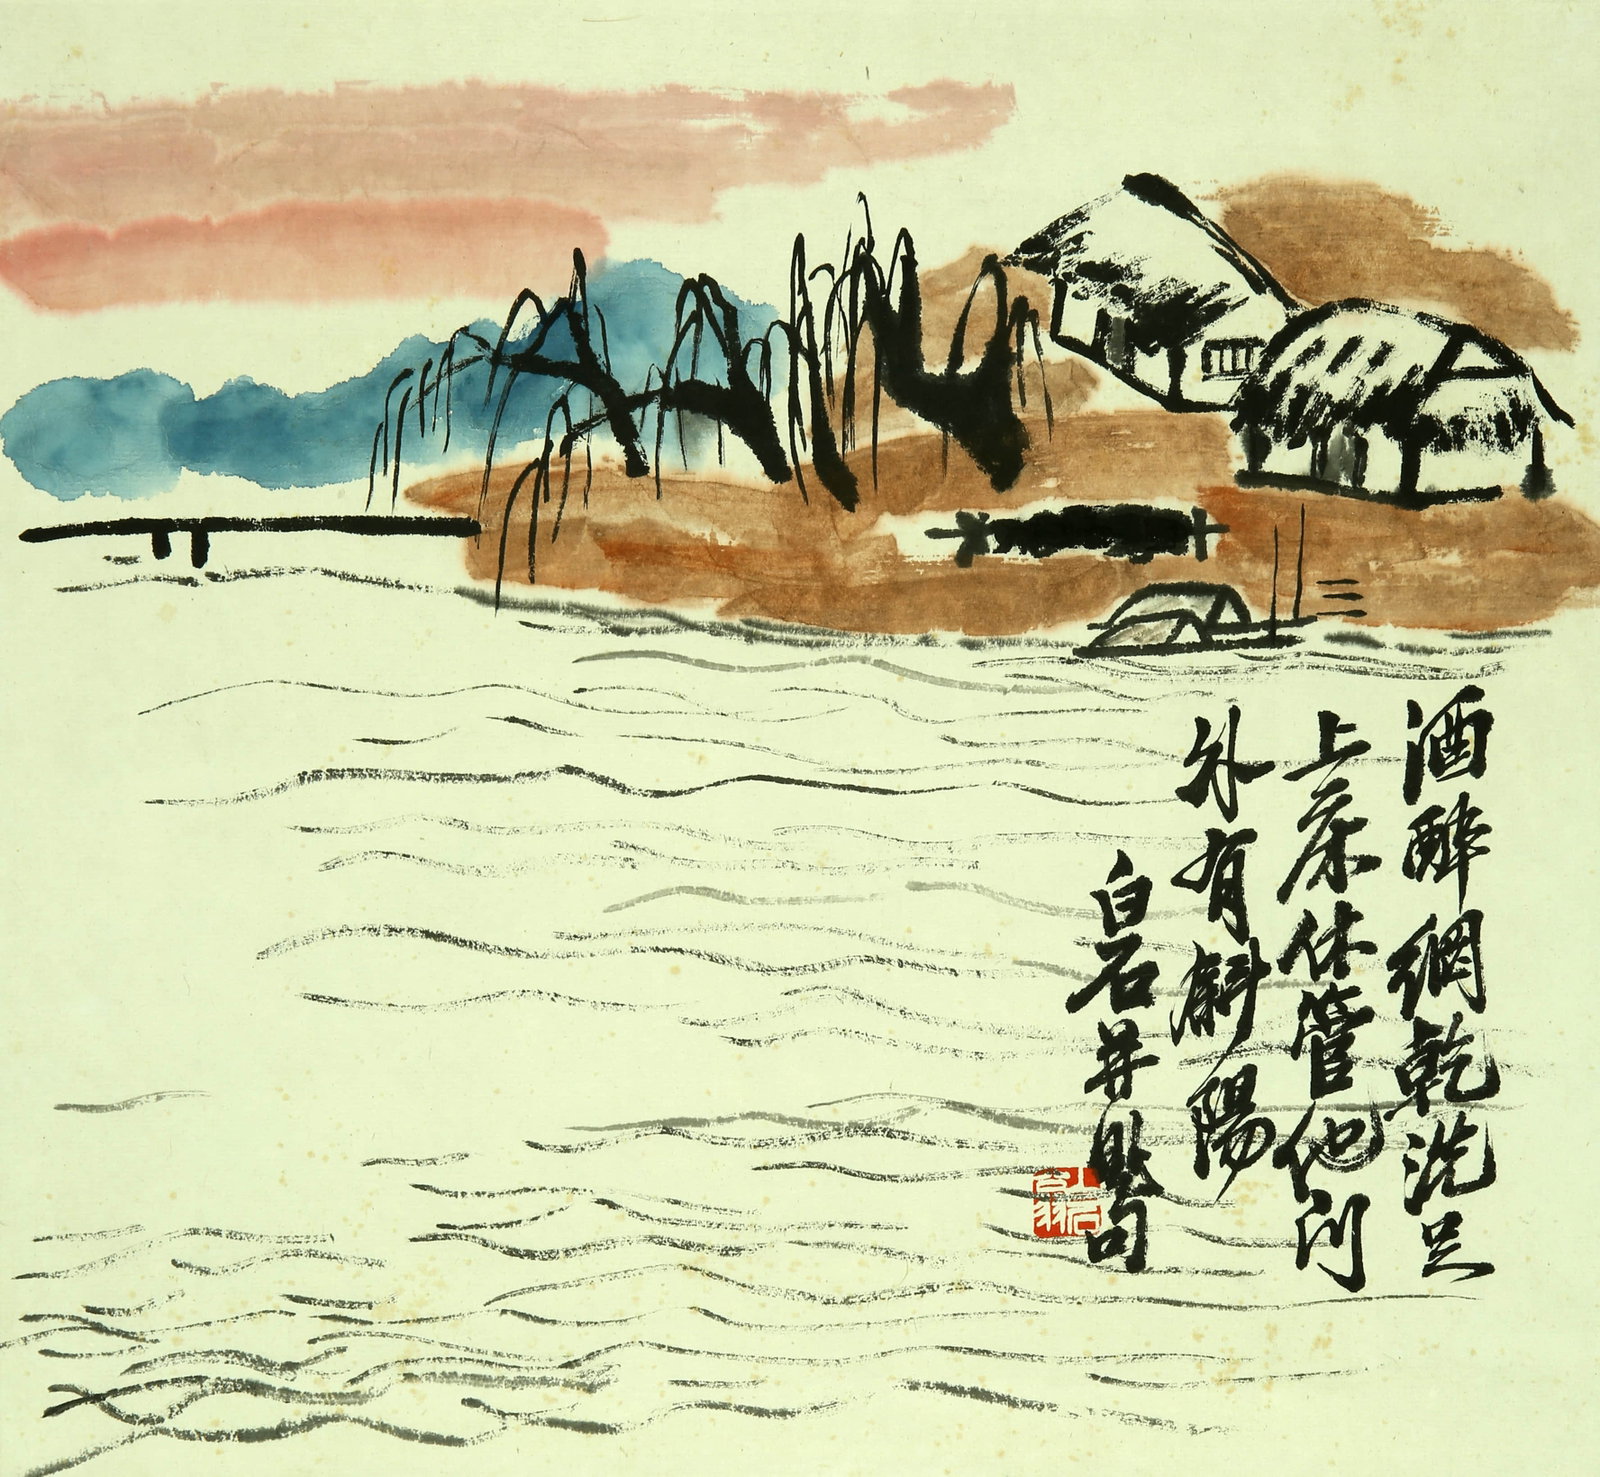 酒醉網乾洗足
上床休管他門
外有斜陽
白石并題句
白石翁